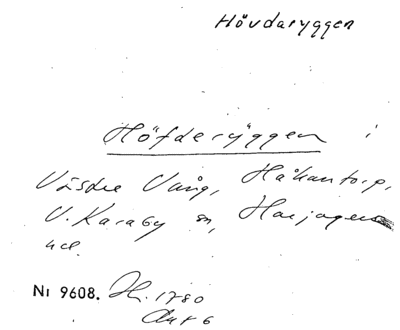 Hövdaryggen
Höfderyggen i
Västra Vång, Håkantorp,
V. Karaby sn, Harjagers
hd.
Nr 9608. Hr. 1780
Akt 6